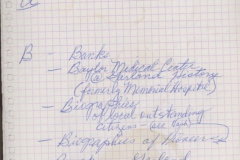 B - Banks
- Baylor Medical Center
@ Garland History
(formerly Memorial Hospital)
- Biographies
of local outstanding
citizens - (see
- Biographies of Pioneers